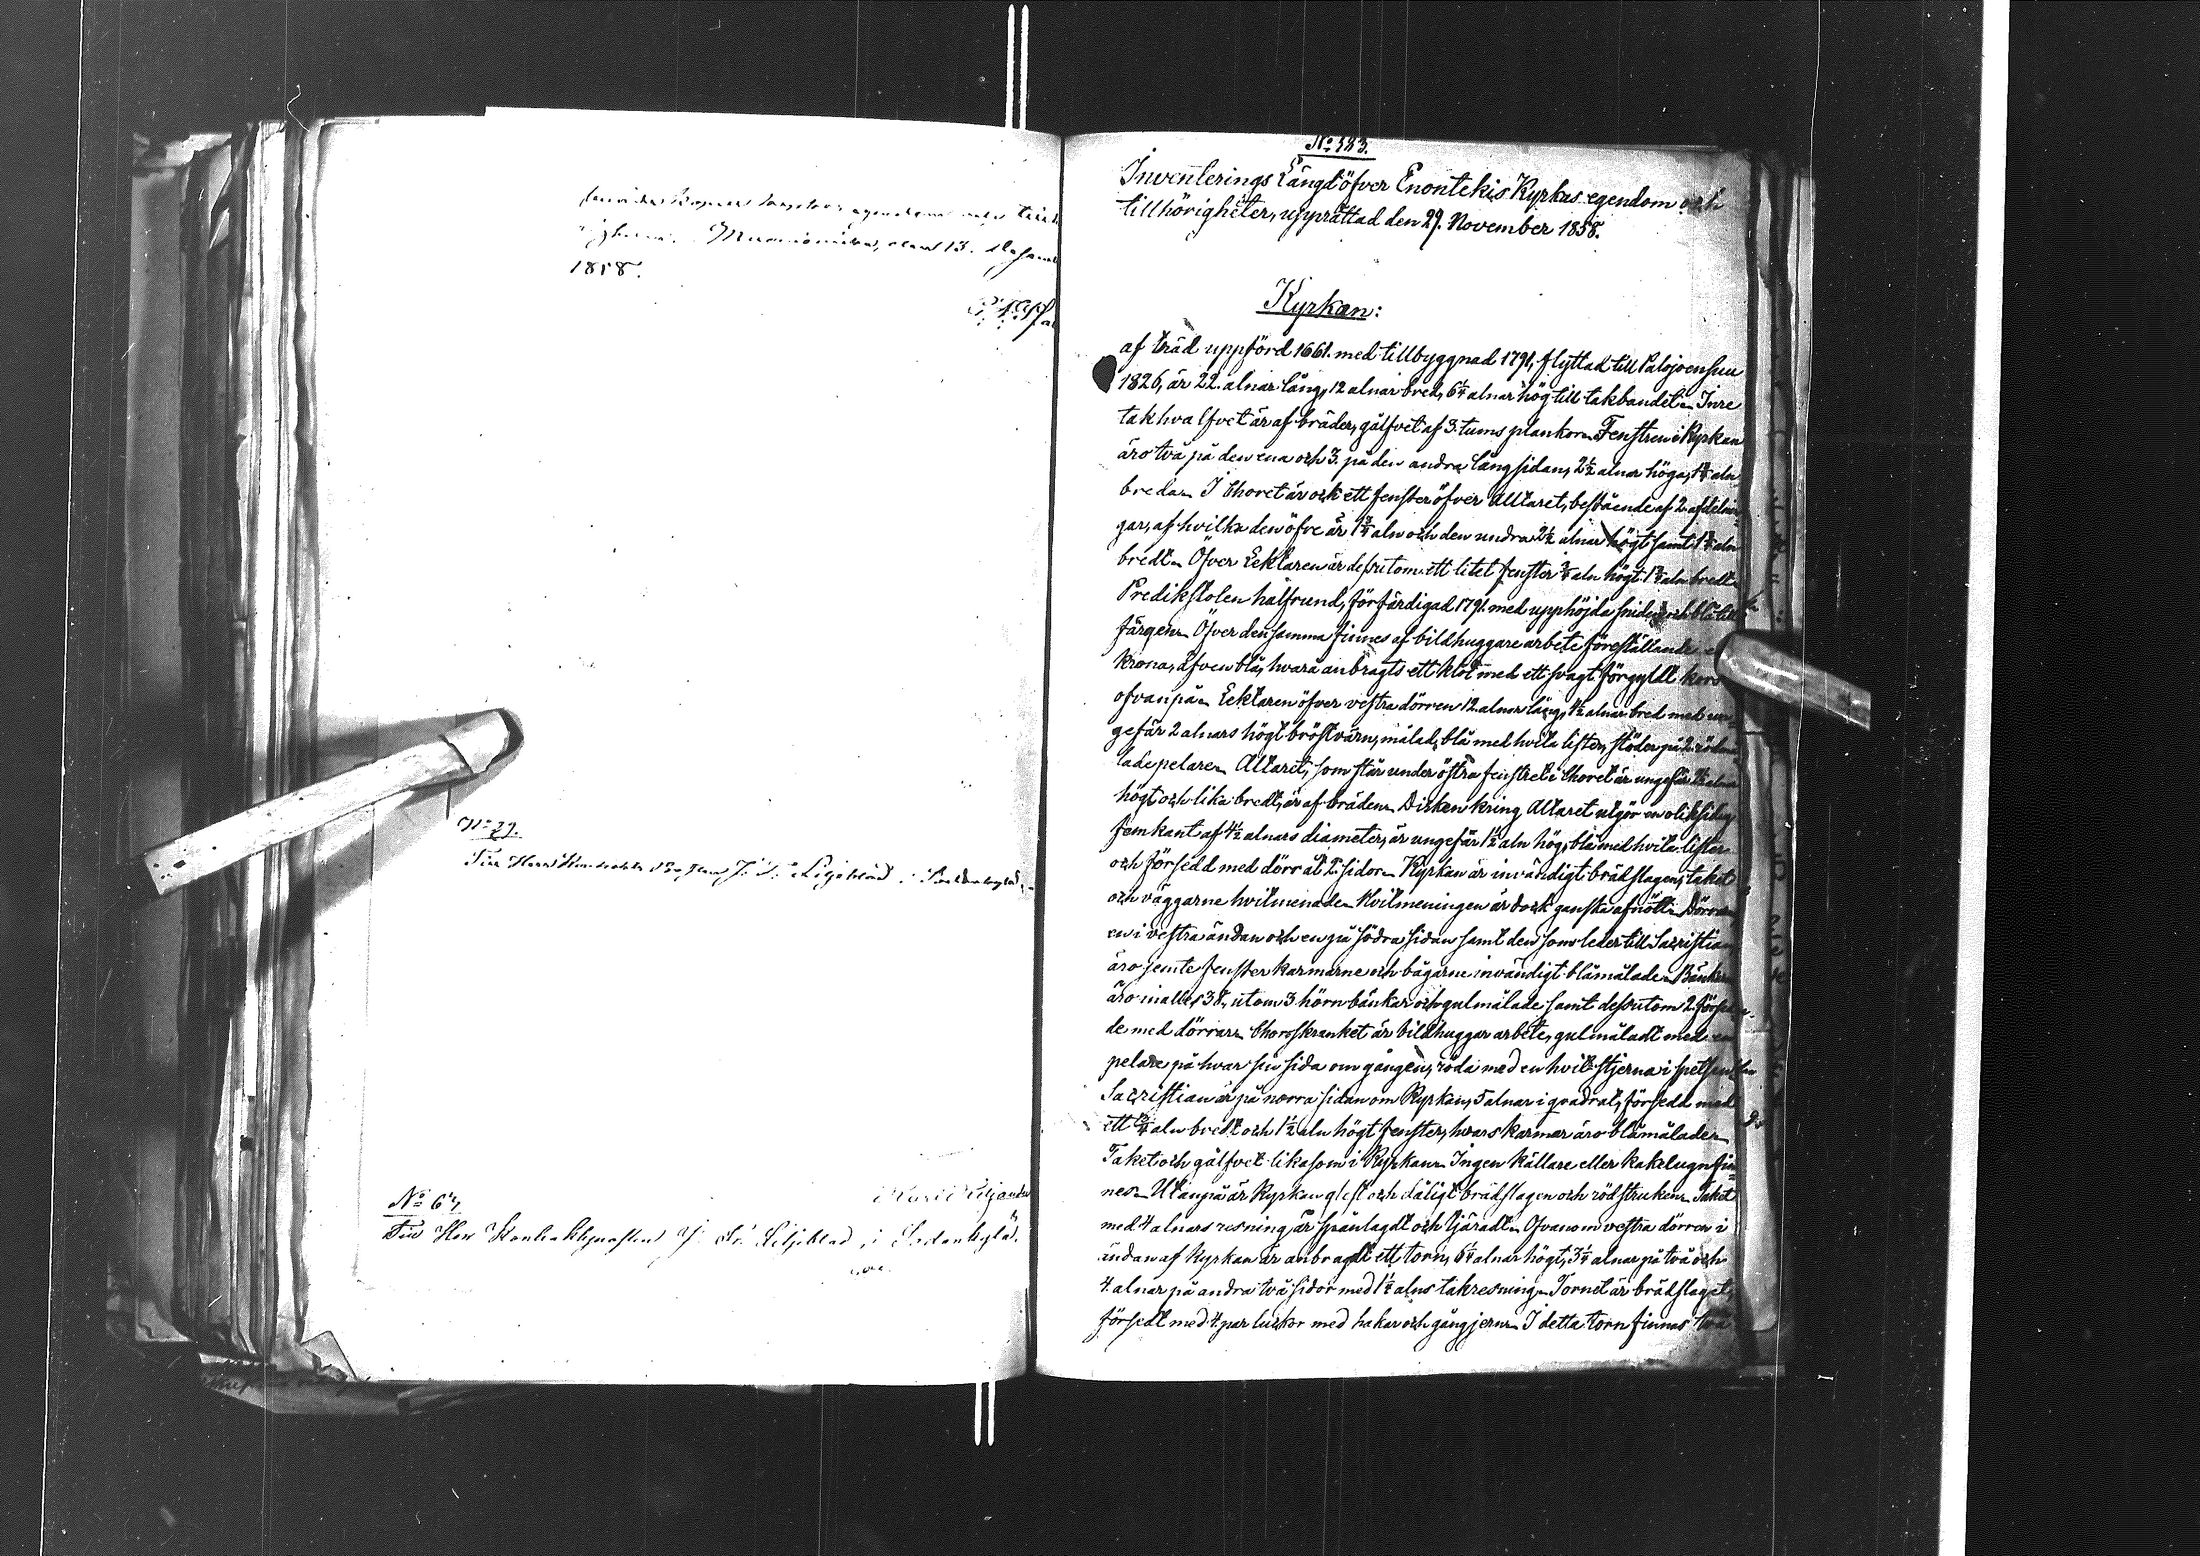 1858.
No 29.
i Sodankylä
No 64
Till Herr Kontraktsprosten J. Fr. Liljeblad, i Sodankylä.
No 583.
Inventerings Längd öfver Enontekis Kyrkas egendom och
tillhörigheter, upprättad den 29. November 1858.
Kyrkan:
af träd uppförd 1661. med tillbyggnad 1791, flyttad till Palojoensuu
1826, är 22. alnar lång, 12 alnar bred, 6¼ alnar hög till takbandet. Inre
takhvalfvet är af bräder, gålfvet af 3. tums plankor. Fenstren i Kyrkan
äro två på den ena och 3. på den andra långsidan, 2½ alnar höga, aln
breda. I Choret är ock ett fenster öfver Altaret, bestående af 2. afdelnin-
gar, af hvilka den öfre är 1¾ aln och den undra 2½ alnar högt samt aln
bredt. Öfver Läktaren är dessutom ett litet fenster ¾ aln högt aln bredt
Predikstolen halfrund, förfärdigad 1791. med upphöjda sidor och blå till
färgen. Öfver densamma finnes af bildhuggare arbete föreställande en
krona, äfven blå, hvarå anbragts ett klot med ett svagt förgyldt kors
ofvanpå. Läktaren öfver vestra dörren 12. alnar lång, 4½ alnar bred med un
gefär 2 alnars högt bröstvärn, målad, blå med hvita lister, stöder på 2. rödm
lade pelare. Altaret, som står under östra fenstret i Choret är ungefär alnar
högt och lika bredt, är af bräden. Disken kring Altaret utgör en oliksidig
femkant af 4½ alnars diameter, är ungefär 1½ aln hög, blå med hvita lister
och försedd med dörr åt 2. sidor. Kyrkan är invändigt brädslagen, taket
och väggarne hvitmenade. Hvitmeningen är dock ganska afnött. Dörrar
en i vestra ändan och en på södra sidan samt den som leder till Sacristian
äro jemte fensterkarmarne och bågarne invändigt blåmålade. Bänkar
äro inalles 38, utom 3 hörnbänkar och gulmålade samt dessutom 2. försed
de med dörrar. Chorskranket är bildhuggar arbete, gulmåladt med en
pelare på hvar sin sida om gången, röda med en hvit stjerna i spetsen
Sacristian är på norra sidan om Kyrkan, 5 alnar i qvadrat, försedd med
ett aln bredt och 1½ aln högt fenster, hvars karmar äro blåmålade.
Taket och gålfvet likasom i Kyrkan. Ingen källare eller kakelugn fin-
nes. Utanpå är Kyrkan glest och dåligt brädslagen och rödstruken. Taket
med 4 alnars resning, är spånlagdt och tjäradt. Ofvanom vestra dörren i
ändan af Kyrkan är anbragdt ett torn, 6¼ alnar högt, 3¼ alnar på två och
4. alnar på andra två sidor med 1½ alns takresning. Tornet är brädslaget,
försedt med 4. par luckor med hakar och gångjern. I detta torn finnas två